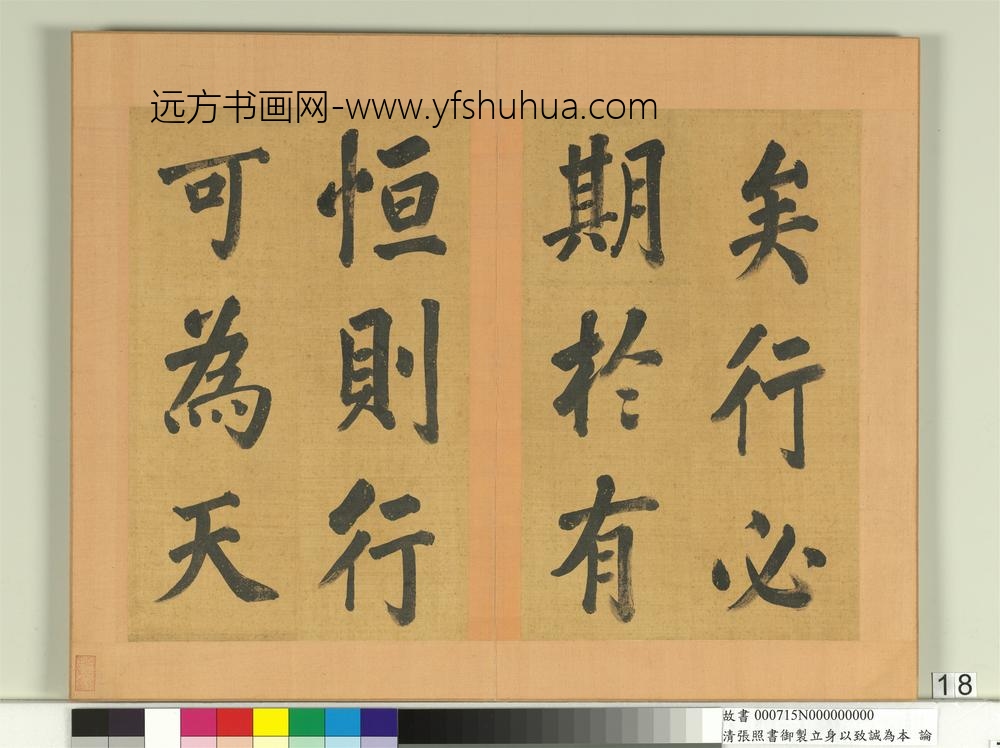 远方书画网-www.yfshuhua.com
矣行必
期於有
恒則行
可為天
18
故書 000715N000000000
清張照書御製立身以致誠為本 論